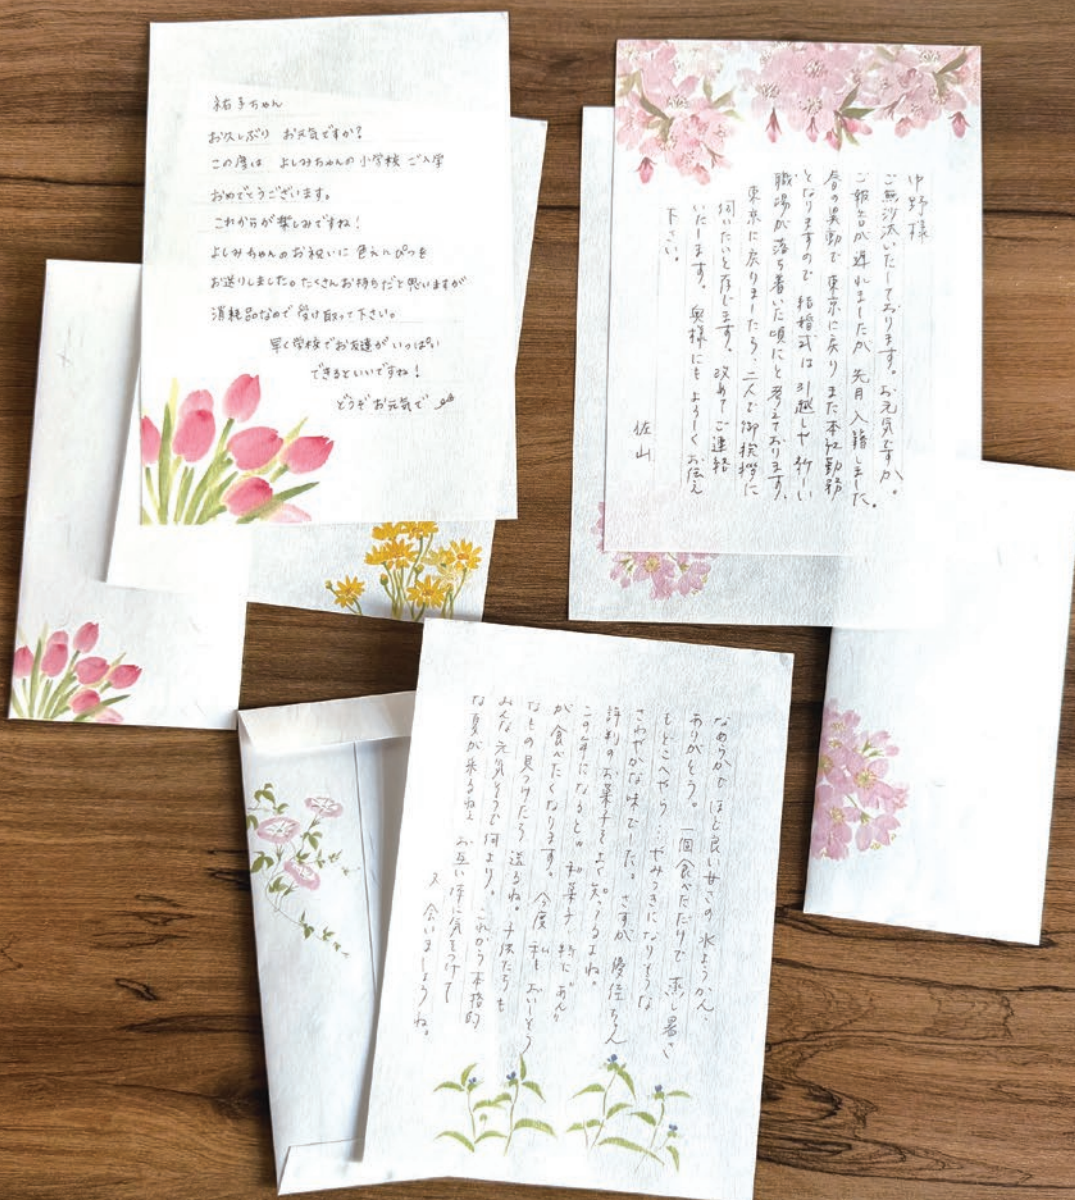 祐子ちゃん
お久しぶり お元気ですか?
この度は よしみちゃんの小学校 ご入学
おめでとうございます。
これからが楽しみですね!
よしみちゃんのお祝いに 色えんぴつを
お送りしました。たくさんお持ちだと思いますが
消耗品なので受け取って下さい。
早く学校でお友達がいっぱい
できるといいですね!
どうぞお元気で
中野様
ご無沙汰いたしております。お元気ですか。
ご報告が遅れましたが 先月入籍しました。
春の異動で東京に戻り また本社勤務
となりますので 結婚式は引越しや新しい
職場が落ち着いた頃にと考えております。
東京に戻りましたら、二人で御挨拶に
伺いたいと存じます。改めてご連絡
いたします。奥様にもよろしくお伝え
下さい。
佐山
なめらかで ほど良い甘さの水ようかん、
ありがとう。一個食べただけで 蒸し暑さ
もどこへやら…やみつきになりそうな
さわやかな味でした。さすが 優佳ちゃん
評判のお菓子をよく知ってるよね。
この年になると〃和菓子 特に〃あん〃
が食べたくなります。今度 私もおいしそう
なもの見つけたら 送るね。子供たちも
みんな元気そうで何より。これから本格的
な夏が来るねえ お互い体に気をつけて
又 会いましょうね。